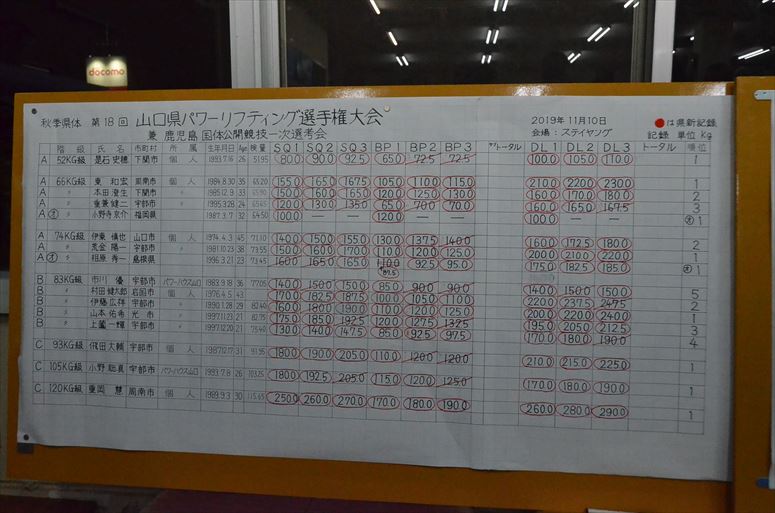 docomo
秋季県体 第18回 山口県パワーリフティング選手権大会
2019年11月10日
●は県新記録
兼 鹿児島国体公開競技一次選考会
会場：ステイヤング
記録 単位 kg
階級 氏名 市町村 所属 生年月日 Age 検量 SQ1 SQ2 SQ3 BP1 BP2 BP3 サブトータル DL1 DL2 DL3 トータル 順位
A 52KG級 是石 史穂 下関市 個人 1993.7.16 26 51.95 80.0 90.0 92.5 65.0 72.5 72.5 100.0 105.0 110.0 1
A 66KG級 東 和宏 周南市 個人 1984.8.30 35 65.20 155.0 165.0 167.5 105.0 110.0 115.0 210.0 220.0 230.0 1
A 〃 本田 隆生 下関市 〃 150.0 160.0 165.0 120.0 125.0 130.0 160.0 170.0 180.0 2
A 〃 重兼 健二 宇部市 〃 1995.3.28 24 120.0 130.0 135.0 65.0 70.0 70.0 160.0 165.0 167.5 3
A オ 〃 小野寺 京介 福岡県 1987.3.7 32 64.50 100.0 — — 120.0 — — 100.0 — — オ1
A 74KG級 伊東 慎也 山口市 個人 1974.4.3 45 71.10 140.0 150.0 155.0 130.0 137.5 140.0 160.0 172.5 180.0 2
A 〃 荒金 陽一 宇部市 〃 1981.10.23 38 73.55 150.0 160.0 170.0 110.0 120.0 125.0 200.0 210.0 220.0 1
A オ 〃 相原 秀一 島根県 1996.3.21 23 73.45 160.0 165.0 165.0 110.0 92.5 95.0 175.0 182.5 185.0 オ1
87.5
B 83KG級 市川 優 宇部市 パワーハウス山口 1983.9.18 36 77.05 140.0 150.0 150.0 85.0 90.0 90.0 140.0 150.0 150.0 5
B 〃 村田 健太郎 岩国市 個人 1976.4.5 43 170.0 182.5 187.5 100.0 105.0 110.0 220.0 237.5 247.5 2
B 〃 伊藤 広祥 宇部市 〃 1990.1.28 29 82.40 160.0 180.0 190.0 110.0 120.0 125.0 200.0 220.0 240.0 1
B 〃 山本 佑希 光市 〃 1997.11.23 21 82.75 175.0 185.0 192.5 120.0 127.5 132.5 195.0 205.0 212.5 3
B 〃 上薗 一輝 宇部市 〃 1997.12.20 21 75.40 130.0 140.0 147.5 85.0 92.5 97.5 170.0 180.0 190.0 4
C 93KG級 飛田 大輔 宇部市 個人 1987.12.17 31 91.95 180.0 190.0 205.0 110.0 120.0 120.0 210.0 215.0 225.0 1
C 105KG級 小野 聡真 宇部市 パワーハウス山口 1993.7.8 26 103.25 180.0 192.5 205.0 115.0 120.0 125.0 170.0 180.0 190.0 1
C 120KG級 重岡 慧 周南市 個人 1989.9.3 30 115.65 250.0 260.0 270.0 170.0 180.0 190.0 260.0 280.0 290.0 1